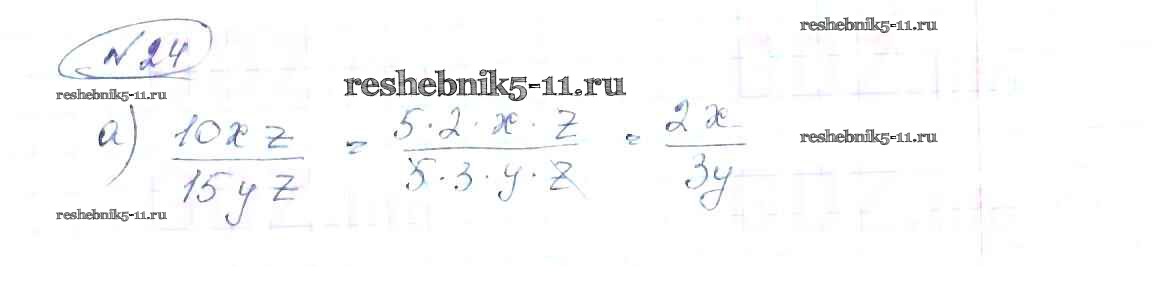 reshebnik5-11.ru
№ 24
reshebnik5-11.ru
reshebnik5-11.ru
а) 10xz / 15yz = 5·2·x·z / 5·3·y·z = 2x / 3y
reshebnik5-11.ru
reshebnik5-11.ru